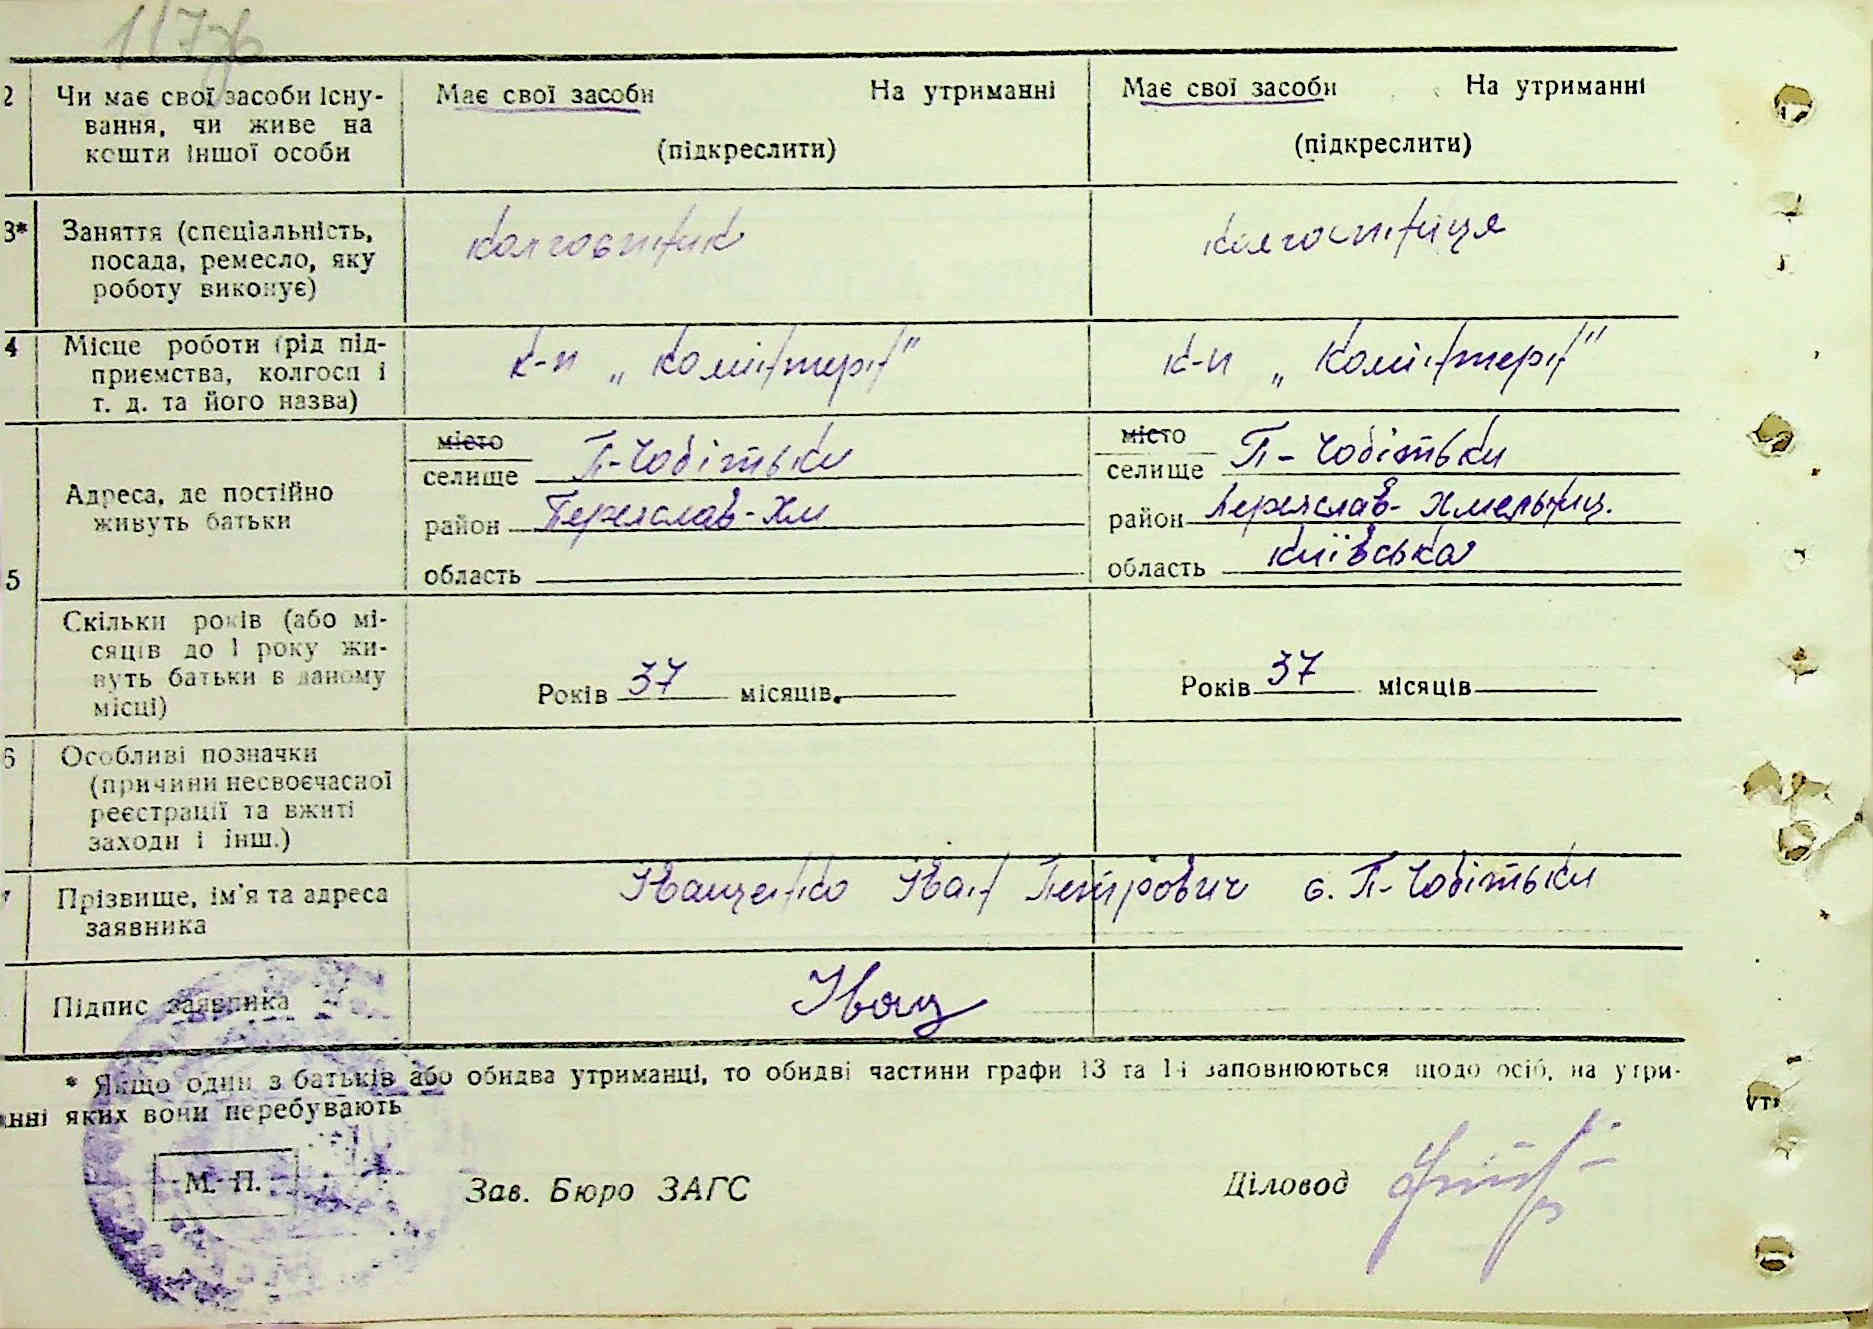 2 Чи має свої засоби існу- Має свої засоби На утриманні Має свої засоби На утриманні
вання, чи живе на
кошти іншої особи (підкреслити) (підкреслити)
3* Заняття (спеціальність, колгоспник колгоспниця
посада, ремесло, яку
роботу виконує)
4 Місце роботи (рід під- к-п „Комінтерн" к-п „Комінтерн"
приємства, колгосп і
т. д. та його назва)
5 Адреса, де постійно
живуть батьки
місто
селище П-Чобітьки
район Переяслав-Хм
область
місто
селище П-Чобітьки
район Переяслав-Хмельниц.
область Київська
Скільки років (або мі-
сяців до 1 року жи-
вуть батьки в даному
місці)
Років 37 місяців. Років 37 місяців
6 Особливі позначки
(причини несвоєчасної
реєстрації та вжиті
заходи і інш.)
7 Прізвище, ім'я та адреса Іващенко Іван Петрович с. П-Чобітьки
заявника
Підпис заявника Іващ
* Якщо один з батьків або обидва утриманці, то обидві частини графи 13 та 14 заповнюються щодо осіб, на утри-
анні яких вони перебувають
М. П. Зав. Бюро ЗАГС Діловод